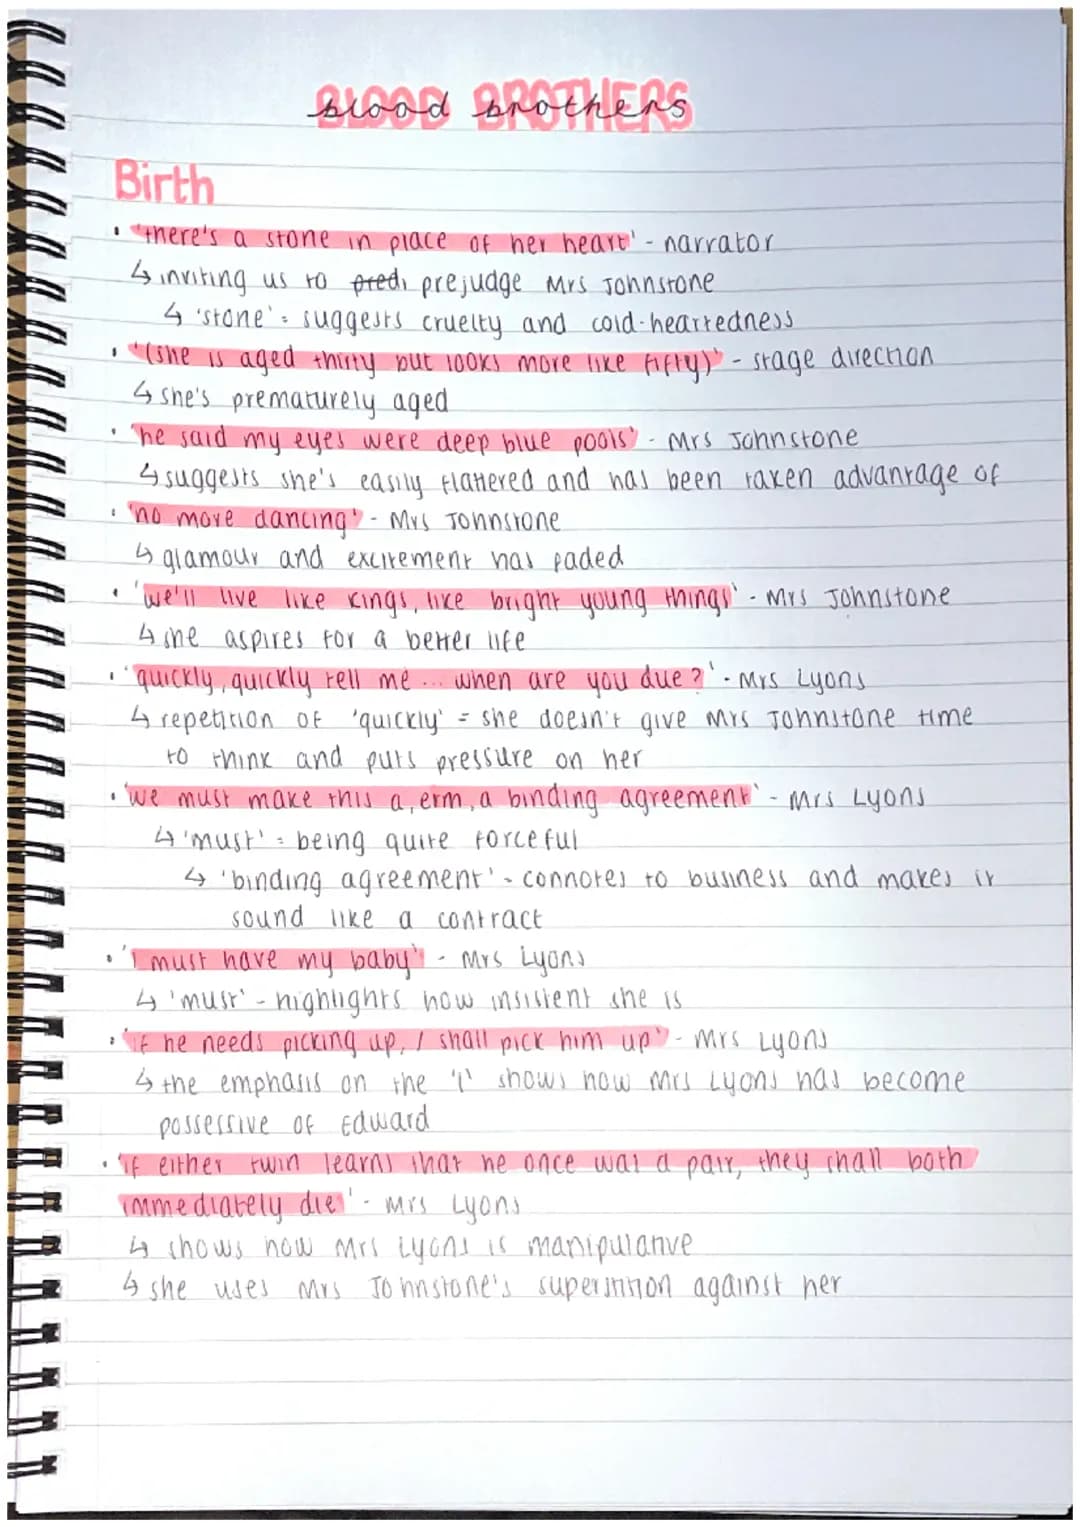 blood brothers
Birth
• 'there's a stone in place of her heart' - narrator
↳ inviting us to predi prejudge Mrs Johnstone
↳ 'stone' = suggests cruelty and cold-heartedness
• '(she is aged thirty but looks more like fifty)' - stage direction
↳ she's prematurely aged
• 'he said my eyes were deep blue pools' - Mrs Johnstone
↳ suggests she's easily flattered and has been taken advantage of
• 'no more dancing' - Mrs Johnstone
↳ glamour and excitement has faded
• 'we'll live like kings, like bright young things' - Mrs Johnstone
↳ she aspires for a better life
• 'quickly, quickly tell me ... when are you due?' - Mrs Lyons
↳ repetition of 'quickly' = she doesn't give Mrs Johnstone time
to think and puts pressure on her
• 'we must make this a, erm, a binding agreement' - Mrs Lyons
↳ 'must' = being quite forceful
↳ 'binding agreement' - connotes to business and makes it
sound like a contract
• 'I must have my baby' - Mrs Lyons
↳ 'must' - highlights how insistent she is
• 'if he needs picking up, I shall pick him up' - Mrs Lyons
↳ the emphasis on the 'I' shows how Mrs Lyons has become
possessive of Edward
• 'if either twin learns that he once was a pair, they shall both
immediately die' - Mrs Lyons
↳ shows how Mrs Lyons is manipulative
↳ she uses Mrs Johnstone's superstition against her